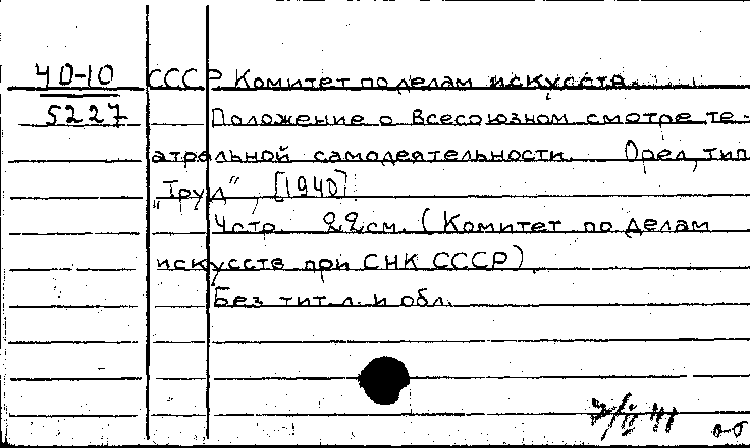 40-10 СССР Комитет по делам искусств.
5227 Положение о Всесоюзном смотре те-
атральной самодеятельности. Орел, тип.
„Труд", [1940]
4 стр. 22 см. (Комитет по делам
искусств при СНК СССР)
Без тит. л. и обл.
7/II 41